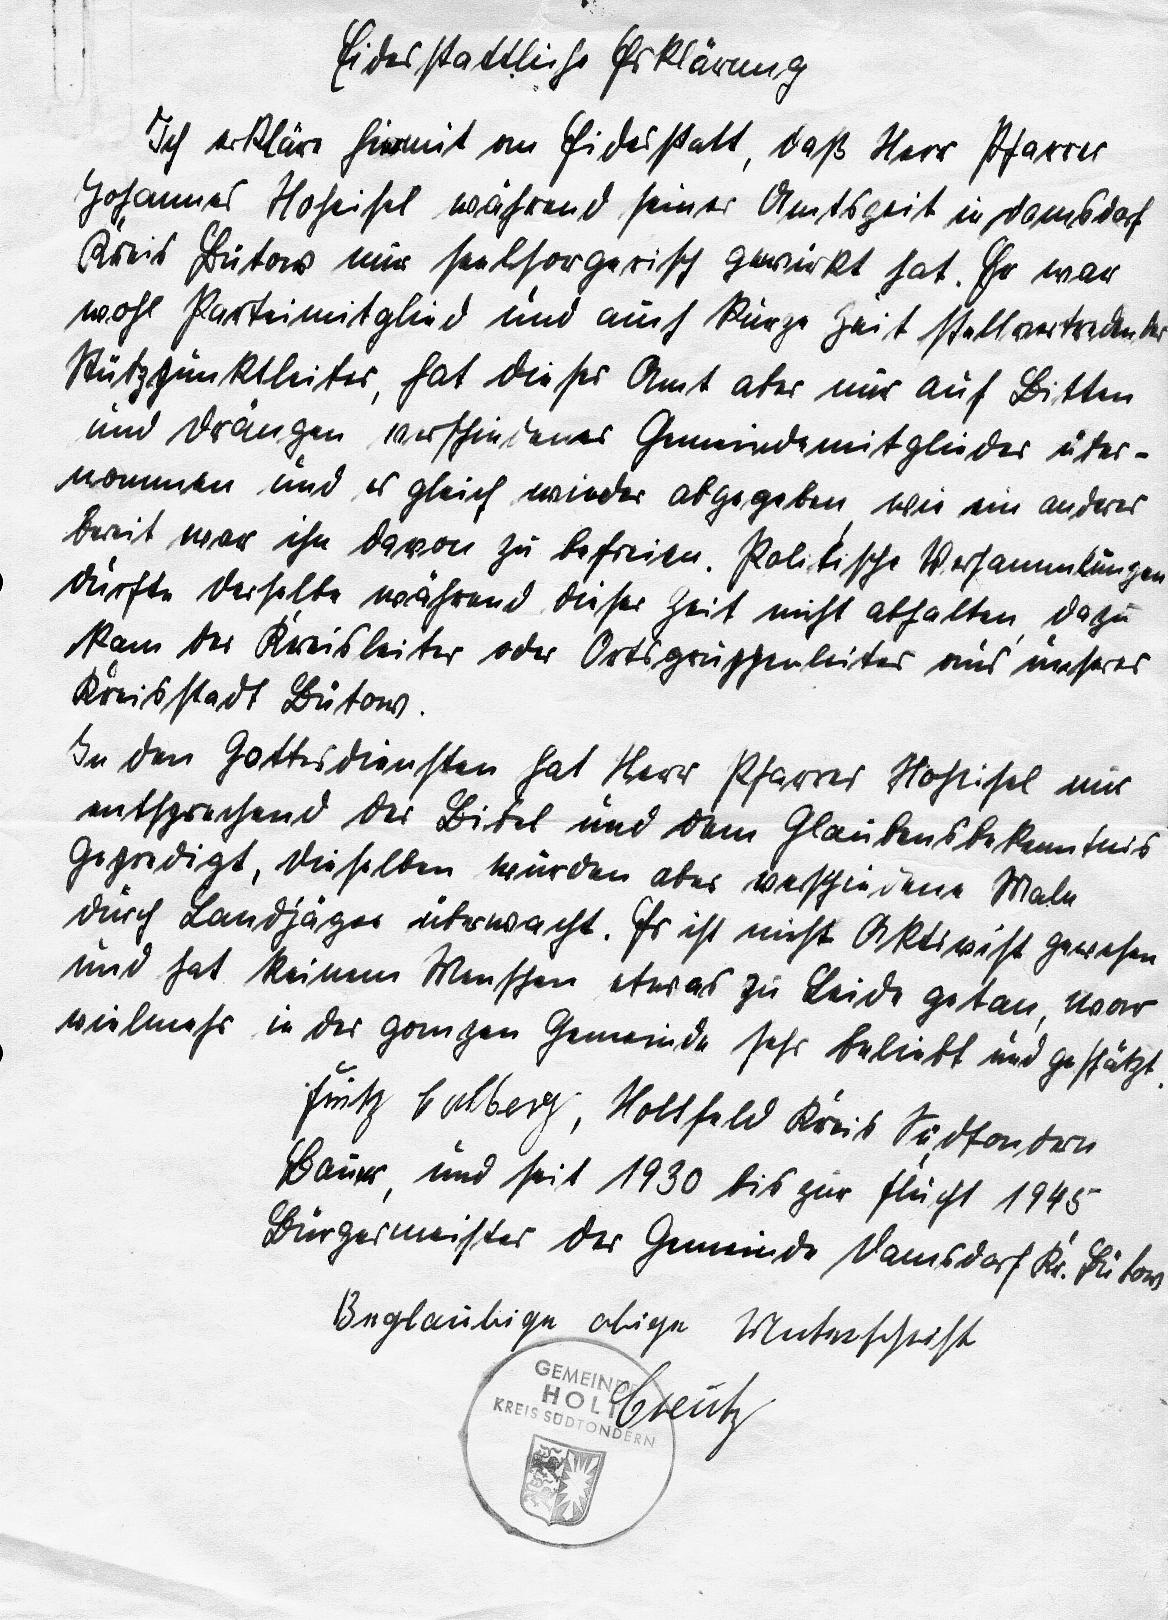 Eidesstattliche Erklärung
Ich erkläre hiermit an Eidesstatt, daß Herr Pfarrer
Johannes Hoheisel während seiner Amtszeit in Damsdorf
Kreis Bütow nur seelsorgerisch gewirkt hat. Er war
wohl Parteimitglied und auch kurze Zeit stellvertretender
Stützpunktleiter, hat dieses Amt aber nur auf Bitten
und Drängen verschiedener Gemeindemitglieder über-
nommen und es gleich wieder abgegeben, wie ein anderer
bereit war ihn davon zu befreien. Politische Versammlungen
durfte derselbe während dieser Zeit nicht abhalten, dazu
kam der Kreisleiter oder Ortsgruppenleiter aus unserer
Kreisstadt Bütow.
In den Gottesdiensten hat Herr Pfarrer Hoheisel nur
entsprechend der Bibel und dem Glaubensbekenntnis
gepredigt, dieselben wurden aber verschiedene Male
durch Landjäger überwacht. Er ist nicht Aktivist gewesen
und hat keinem Menschen etwas zu Leide getan, war
vielmehr in der ganzen Gemeinde sehr beliebt und geschätzt.
Holtfeld Kreis Südtondern
Bauer, und seit 1930 bis zur Flucht 1945
Bürgermeister der Gemeinde Damsdorf Kr. Bütow
Beglaubige obige Unterschrift
GEMEINDE
HOLT
KREIS SÜDTONDERN